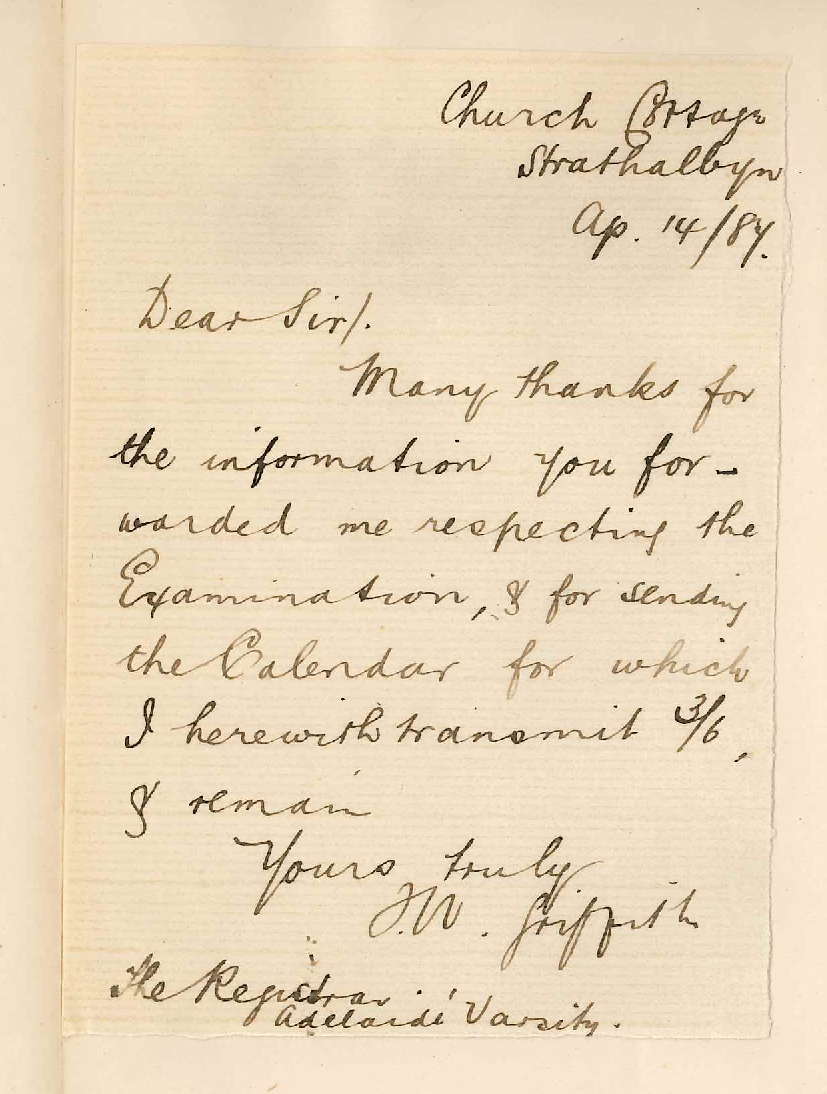 Church Cottage
Strathalbyn
Ap. 14/87.
Dear Sir/.
Many thanks for
the information you for-
warded me respecting the
Examination, & for sending
the Calendar for which
I herewith transmit 3/6,
& remain
Yours truly
J.W. Griffith
The Registrar
Adelaide 'Varsity.